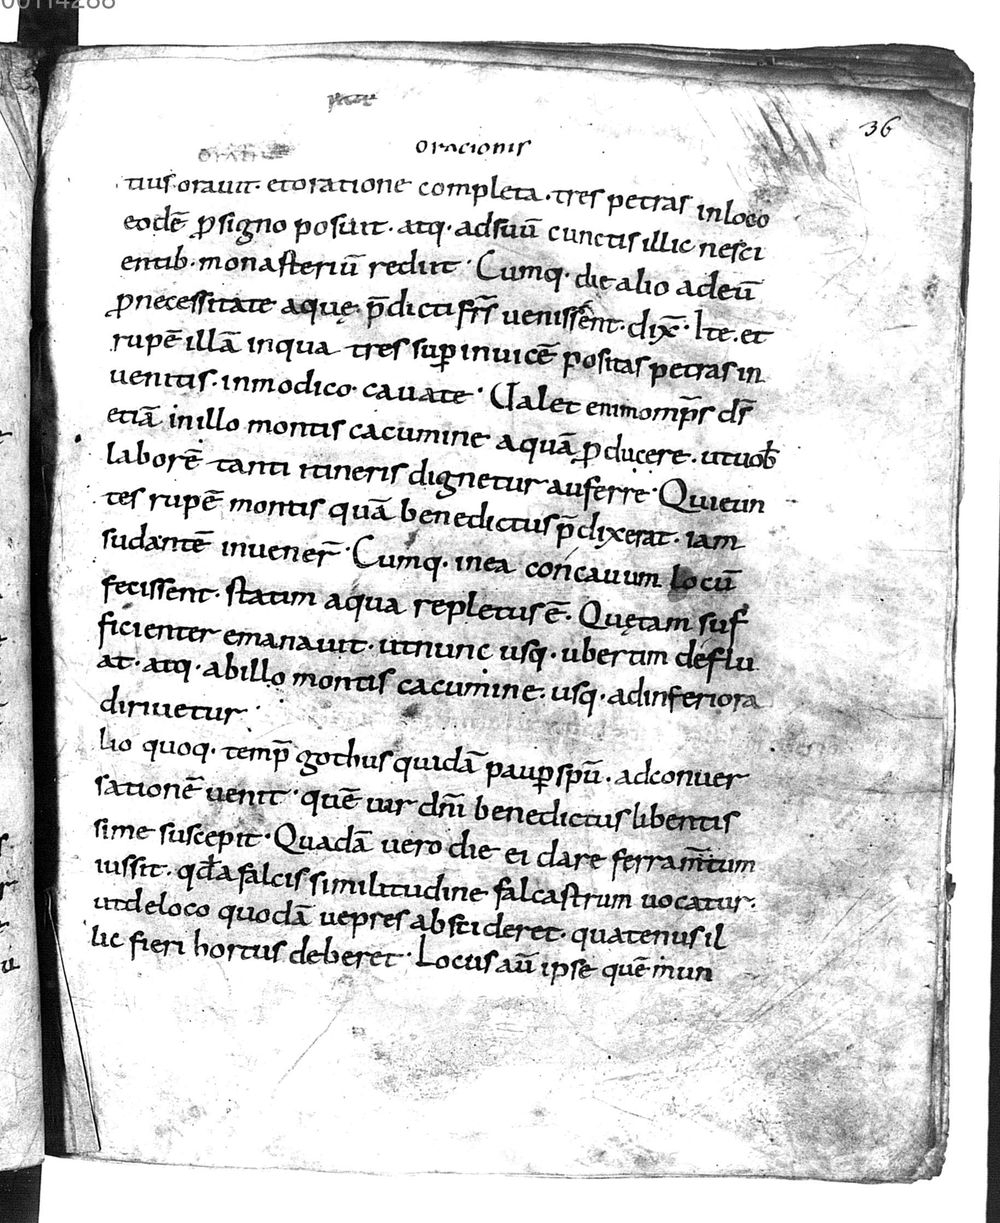 00114288
36
oracionis
tius orauit· et oratione completa· tres petras in loco
eodē ꝑ signo posuit· atq· ad suū cunctis illic nesci
entib· monasteriū rediit· Cumq· die alio ad eū
ꝓ necessitate aquę· p̄dicti fr̄s uenissent· dix̄· Ite· et
rupē illā in qua tres sup̱ inuicē positas petras in
uenitis· in modico cauate· Ualet enim omp̄s ds̄
etiā in illo montis cacumine aquā ꝓducere· ut uob̄
laborē tanti itineris dignetur auferre· Qui eun
tes rupē montis quā benedictus p̄dixerat· iam
sudantē inuener̄· Cumq· in ea concauum locū
fecissent· statim aqua repletus ē· Quę tam suf
ficienter emanauit· ut nunc usq· ubertim deflu
at· atq· ab illo montis cacumine· usq· ad inferiora
diriuetur·
lio quoq· temp̄ gothus quidā paup̱ spū· ad conuer
sationē uenit· quē uir dn̄i benedictus libentis
sime suscepit· Quadā uero die ei dare ferram̄tum
iussit· qd̄ a falcis similitudine falcastrum uocatur·
ut de loco quodā uepres abscideret· quatenus il
lic fieri hortus deberet· Locus aū ipse quē mun